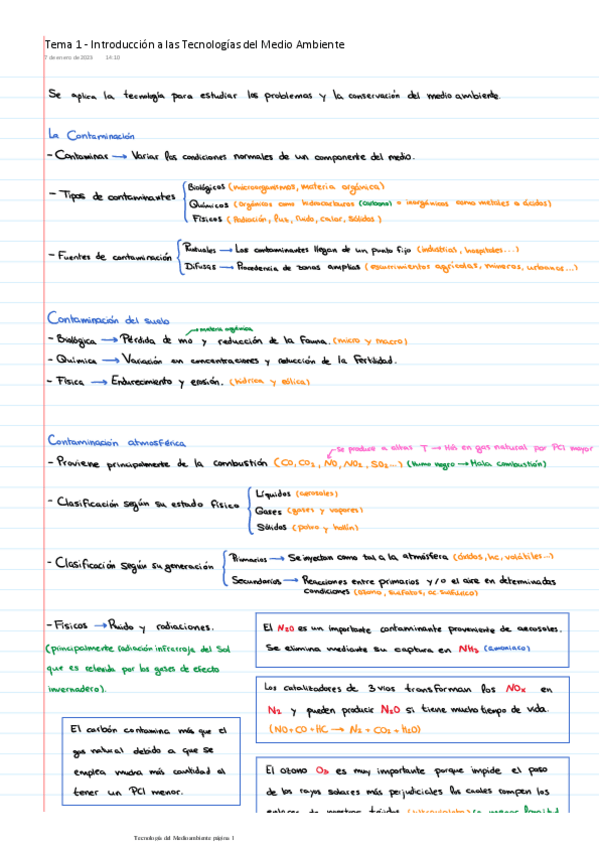 Tema 1 - Introducción a las Tecnologías del Medio Ambiente
7 de enero de 2023 14:10
Se aplica la tecnología para estudiar los problemas y la conservación del medio ambiente.
La Contaminación
- Contaminar → Variar las condiciones normales de un componente del medio.
- Tipos de contaminantes
Biológicos (microorganismos, materia orgánica)
Químicos (orgánicos como hidrocarburos (carbono) o inorgánicos como metales o ácidos)
Físicos (Radiación, luz, ruido, calor, sólidos)
- Fuentes de contaminación
Puntuales → Los contaminantes llegan de un punto fijo (industrias, hospitales...)
Difusas → Procedencia de zonas amplias (escurrimientos agrícolas, mineros, urbanos...)
Contaminación del suelo
→ materia orgánica
- Biológica → Pérdida de mo y reducción de la fauna. (micro y macro)
- Química → Variación en concentraciones y reducción de la fertilidad.
- Física → Endurecimiento y erosión. (hídrica y eólica)
Contaminación atmosférica
→ se produce a altas T → Más en gas natural por PCI mayor
- Proviene principalmente de la combustión (CO, CO2, NO, NO2, SO2...) (Humo negro → Mala combustión)
- Clasificación según su estado físico
Líquidos (aerosoles)
Gases (gases y vapores)
Sólidos (polvo y hollín)
- Clasificación según su generación
Primarios → Se inyectan como tal a la atmósfera (óxidos, hc, volátiles...)
Secundarios → Reacciones entre primarios y/o el aire en determinadas
condiciones (ozono, sulfatos, ac. sulfúrico)
- Físicos → Ruido y radiaciones.
(principalmente radiación infrarroja del Sol
que es retenida por los gases de efecto
invernadero).
El N2O es un importante contaminante proveniente de aerosoles.
Se elimina mediante su captura en NH3 (amoniaco)
Los catalizadores de 3 vías transforman los NOx en
N2 y pueden producir N2O si tiene mucho tiempo de vida.
(NO + CO + HC → N2 + CO2 + H2O)
El carbón contamina más que el
gas natural debido a que se
emplea mucha más cantidad al
tener un PCI menor.
El ozono O3 es muy importante porque impide el paso
de los rayos solares más perjudiciales los cuales rompen los
Tecnología del Medioambiente página 1